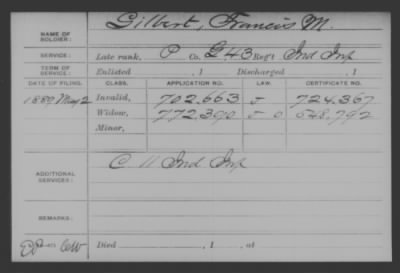 NAME OF SOLDIER: Gilbert, Francis M.
SERVICE: Late rank, P Co. G 43 Reg't Ind Inf
TERM OF SERVICE: Enlisted , 1 Discharged , 1
DATE OF FILING. CLASS. APPLICATION NO. LAW. CERTIFICATE NO.
1889 May 2 Invalid, 702.663 J 724.367
Widow, 772.390 548.792
Minor,
ADDITIONAL SERVICES: C 11 Ind Inf
REMARKS:
Died , 1 , at